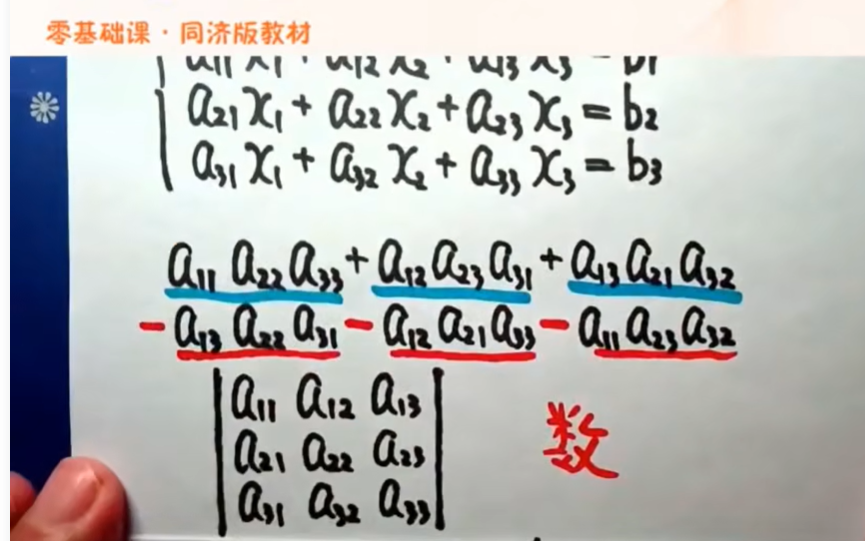 零基础课·同济版教材
a₁₁x₁+a₁₂x₂+a₁₃x₃=b₁
a₂₁x₁+a₂₂x₂+a₂₃x₃=b₂
a₃₁x₁+a₃₂x₂+a₃₃x₃=b₃
a₁₁a₂₂a₃₃+a₁₂a₂₃a₃₁+a₁₃a₂₁a₃₂
-a₁₃a₂₂a₃₁-a₁₂a₂₁a₃₃-a₁₁a₂₃a₃₂
a₁₁ a₁₂ a₁₃
a₂₁ a₂₂ a₂₃
a₃₁ a₃₂ a₃₃
数